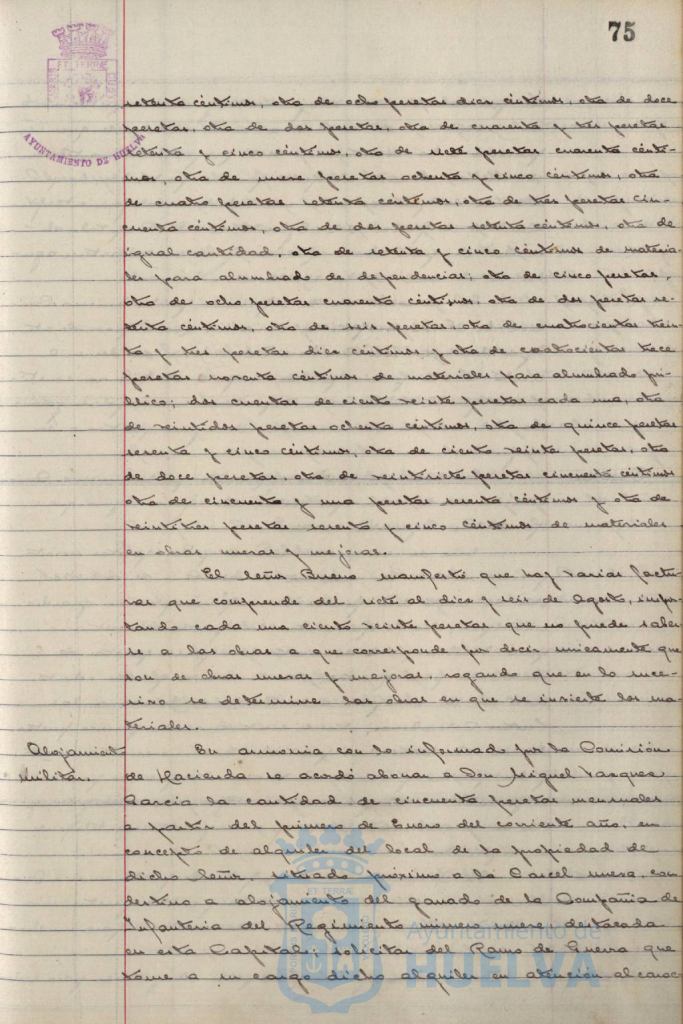 75
ET TERRÆ
AYUNTAMIENTO DE HUELVA
setenta céntimos, otra de ocho pesetas diez céntimos, otra de doce
pesetas, otra de dos pesetas, otra de cuarenta y tres pesetas
setenta y cinco céntimos, otra de siete pesetas cuarenta cénti-
mos, otra de nueve pesetas ochenta y cinco céntimos, otra
de cuatro pesetas setenta céntimos, otra de tres pesetas cin-
cuenta céntimos, otra de dos pesetas setenta céntimos, otra de
igual cantidad, otra de setenta y cinco céntimos de materia-
les para alumbrado de dependencias; otra de cinco pesetas,
otra de ocho pesetas cuarenta céntimos, otra de dos pesetas se-
tenta céntimos, otra de seis pesetas, otra de cuatrocientas trein-
ta y tres pesetas diez céntimos y otra de cuatrocientas trece
pesetas noventa céntimos de materiales para alumbrado pú-
blico; dos cuentas de ciento veinte pesetas cada una, otra
de veintidos pesetas ochenta céntimos, otra de quince pesetas
sesenta y cinco céntimos, otra de ciento veinte pesetas, otra
de doce pesetas, otra de veintisiete pesetas cincuenta céntimos
otra de cincuenta y una pesetas sesenta céntimos y otra de
veintitres pesetas sesenta y cinco céntimos de materiales
en obras nuevas y mejoras.
El Señor Bueno manifestó que hay varias factu-
ras que comprende del siete al diez y seis de Agosto, impor-
tando cada una ciento veinte pesetas que no puede saber-
se a las obras a que corresponde por decir unicamente que
son de obras nuevas y mejoras, rogando que en lo suce-
sivo se determine las obras en que se invierte los ma-
teriales.
Alojamiento
Militar.
En armonia con lo informado por la Comisión
de Hacienda se acordó abonar a Don Miguel Vazquez
Garcia la cantidad de cincuenta pesetas mensuales
a partir del primero de Enero del corriente año, en
concepto de alquiler del local de la propiedad de
dicho Señor, situado próximo a la Carcel nueva, con
destino a alojamiento del ganado de la Compañia de
Infanteria del Regimiento número nueve destacada
en esta Capital; solicitar del Ramo de Guerra que
tome a su cargo dicho alquiler en atención al carac-
Ayuntamiento de
HUELVA